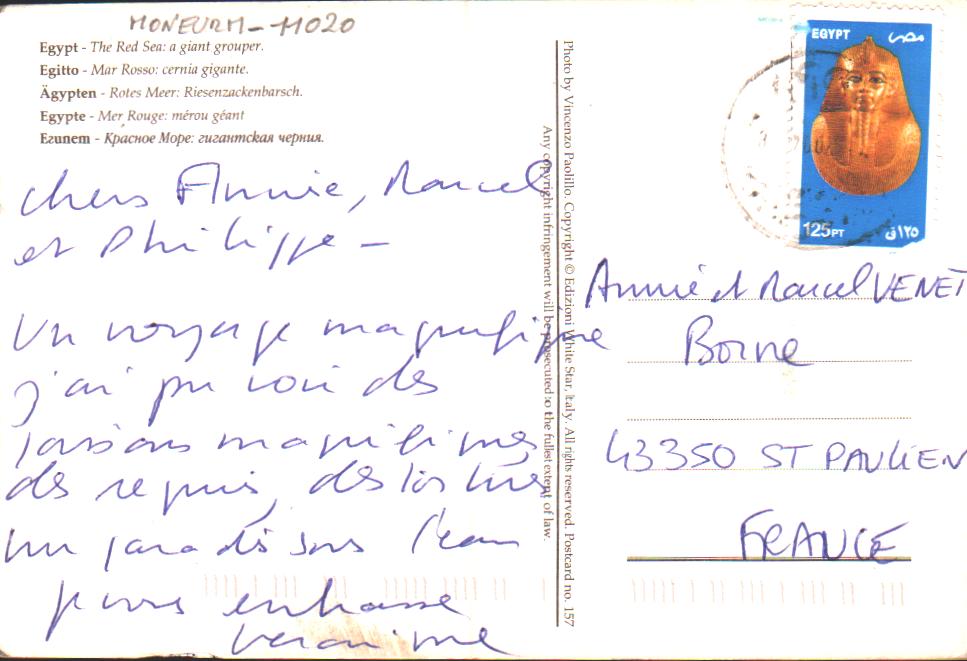 MONEURM-11020
Egypt - The Red Sea: a giant grouper.
Egitto - Mar Rosso: cernia gigante.
Ägypten - Rotes Meer: Riesenzackenbarsch.
Egypte - Mer Rouge: mérou géant
Египет - Красное Море: гигантская черния.
chers Annie, Marcel
et Philippe -
Un voyage magnifique
j'ai pu voir des
poissons magnifiques
des requins, des tortues
un paradis sous l'eau
je vous embrasse
Veronique
Photo by Vincenzo Paolillo. Copyright © Edizioni White Star, Italy. All rights reserved. Postcard no. 157
Any copyright infringement will be prosecuted to the fullest extent of law.
EGYPT مصر
125PT ١٢٥ق
Annie et Marcel VENET
Borne
43350 ST PAULIEN
FRANCE